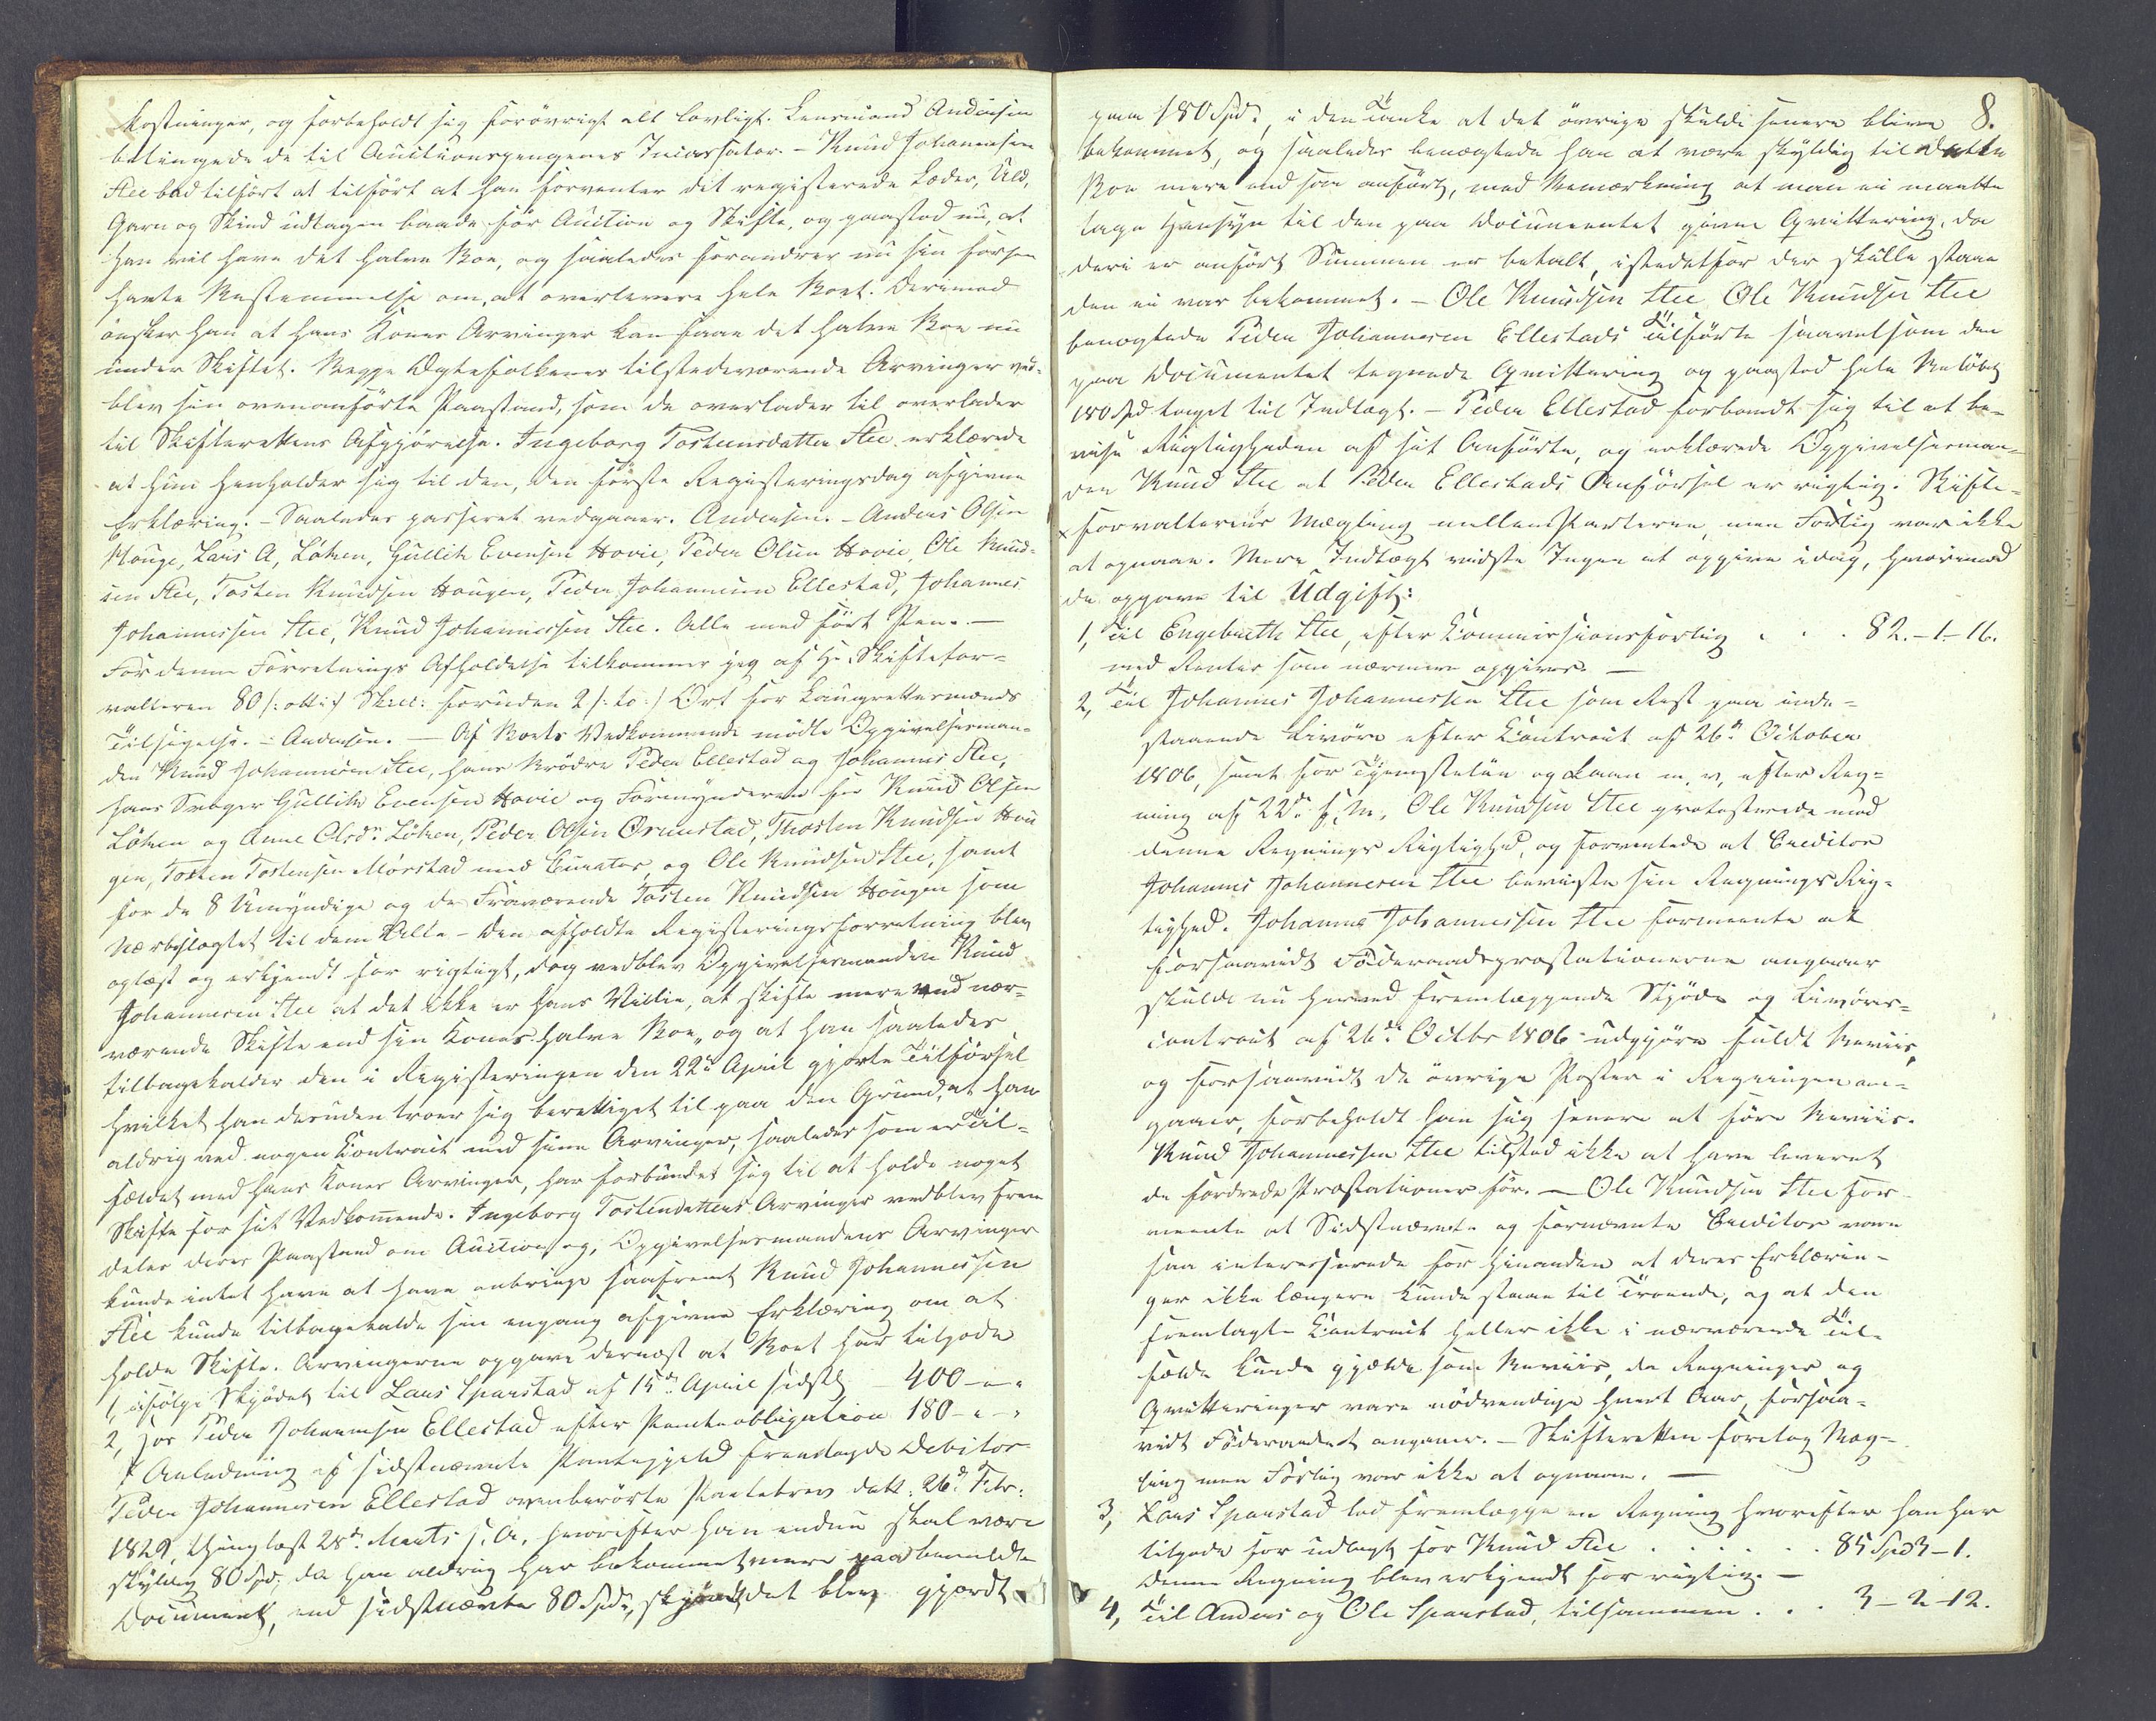 Kostninger, og forbeholdt sig forøvrigt alt lovligt. Lensmand Andersen
betingede de til Auctionspengenes Incassator. - Knud Johannesen
Stee bad tilført at tilført at han forventer det registerede Læder, Uld,
Garn og Skind udtagen baade før Auction og Skifte, og paastod nu, at
han vil have det halve Boe, og saaledes forandrer nu sin forhen
havte Bestemmelse om, at overlevere hele Boet. Derimod
ønsker han at hans Kones Arvinger kan faae det halve Boe nu
under Skiftet. Begge Ægtefolkenes tilstedeværende Arvinger ved-
blev sin ovenanførte Paastand, som de overlader til overlader
til Skifterettens Afgjørelse. Ingeborg Tostensdatter Stee erklærede
at hun henholder sig til den, den første Registeringsdag afgivne
Erklæring. - Saaledes passeret vedgaaer. Andersen. - Anders Olsen
Houge, Lars A, Løken, Gullik Evensen Hovie, Peder Olsen Hovie, Ole Knud-
sen Stee, Tosten Knudsen Hougen, Peder Johannesen Ellestad, Johannes
Johannessen Stee, Knud Johannessen Stee. Alle med ført Pen. -
For denne Forretnings Afholdelse tilkommer jeg af Hr. Skiftefor-
valteren 80 /: otti :/ Skill: foruden 2 /: to :/ Ort for Laugrettesmænds
Tilsigelse. - Andersen. - Af Boets Vedkommende mødte Opgivelsesman-
den Knud Johannesen Stee, hans Brødre Peder Ellestad og Johannes Stee,
hans Svoger Gullik Evensen Hovie og Formynderen for Knud Olsen
Løken og Anne Olsdr. Løken, Peder Olsen Ørmestad, Thosten Knudsen Hou
gen, Tosten Tostensen Mørstad med Curator, og Ole Knudsen Stee, samt
for de 8 Umyndige og de Fraværende Tosten Knudsen Hougen som
Nærbeslægtet til dem Alle. - Den afholdte Registeringsforretning blev
oplæst og erkjendt for rigtigt, dog vedblev Opgivelsesmanden Knud
Johannesen Stee at det ikke er hans Villie, at skifte mere ved nær-
værende Skifte end sin Kones halve Boe, og at han saaledes
tilbagekalder den i Registeringen den 22de April gjorte Tilførsel
hvilket han desuden troer sig berettiget til paa den Grund, at han
aldrig ved nogen Contract med sine Arvinger, saaledes som er Til-
fældet med hans Kones Arvinger, har forbundet sig til at holde noget
Skifte for sit Vedkommende. Ingeborg Tostendatters Arvinger vedblev frem
deles deres Paastand om Auction og, Opgivelsesmandens Arvinger
kunde intet have at have anbringe saafremt Knud Johannessen
Stee kunde tilbagekalde sin engang afgivne Erklæring om at
holde Skifte. Arvingerne opgave dernæst at Boet har tilgode
1, ifølge Skjødet til Lars Sparstad af 15de April sidstl - 400 - " - "
2, hos Peder Johannesen Ellestad efter Panteobligation 180 - " - "
I Anledning af sidstnævnte Pantegjeld fremlagde Debitor
Peder Johannesen Ellestad ovenberørte Pantebrev datt: 26de Febr:
1829, thinglæst 28de Marts s. A, hvorefter han endnu skal være
skyldig 80 Spd, da han aldrig har bekommet mere paa bemeldte
Document, end sidstnævnte 80 Spdr, skjøndt det blev gjordt
8.
paa 180 Spd:, i den Tanke at det øvrige skulde senere blive
bekommet, og saaledes benægtede han at være skyldig til dette
Boe mere end som anført, med Bemærkning at man ei maatte
tage Hensyn til den paa Documentet givne Qvittering, da
deri er anført Summen er betalt, istedetfor der skulle staae
den ei var bekommet. - Ole Knudsen Stee Ole Knudsen Stee
benægtede Peder Johannesen Ellestads Tilførte saavelsom den
paa Documentet tegnede Qvittering og paastod hele Beløbet
180 Spd taget til Indtægt. - Peder Ellestad forbandt sig til at be-
vise Rigtigheden af sit Anførte, og erklærede Opgivelsesman-
den Knud Stee at Peder Ellestads Anførsel er rigtig. Skifte-
forvalteren Mægling mellem Parterne, men Forlig var ikke
at opnaae. Mere Indtægt vidste Ingen at opgive idag, hvorimod
de opgave til Udgift:
1, Til Engebreth Stee, efter Commissionsforlig . . . 82. - 1 - 16.
med Renter som nærmere opgives. -
2, Til Johannes Johannessen Stee som Rest paa inde-
staaende Livøre efter Contract af 26de October
1806, samt for Tjenesteløn og Laan m. v, efter Reg-
ning af 22de f. M, Ole Knudsen Stee protesterede mod
denne Regnings Rigtighed, og forventede at Creditor
Johannes Johannesen Stee beviste sin Regnings Rig-
tighed. Johannes Johannessen Stee formeente at
forsaavidt Føderaadspræstationerne angaaer
skulde nu herved fremlæggende Skjøde og Livøres-
contract af 26de Octbr 1806 udgjøre fuldt Beviis,
og forsaavidt de øvrige Poster i Regningen an-
gaaer, forbeholdt han sig senere at føre Beviis.
Knud Johannessen Stee tilstod ikke at have leveret
de fordrede Præstationer før. - Ole Knudsen Stee for-
meente at Sidstnævnte og fornævnte Creditor vare
saa interesserede for hinanden at deres Erklærin-
ger ikke længere kunde staae til Troende, og at den
fremlagte Contract heller ikke i nærværende Til-
fælde kunde gjælde som Beviis, da Regninger og
Qvitteringer vare nødvendige hvert Aar, forsaa-
vidt Føderaadet angaaer. - Skifteretten foretog Mæg-
ling men Forlig var ikke at opnaae. -
3, Lars Sparstad lod fremlægge en Regning hvorefter han har
tilgode for udlagt for Knud Stee . . . . . . 85 Spd 3 - 1.
Denne Regning blev erkjendt for rigtig. -
4, Til Anders og Ole Sparstad, tilsammen . . . 3 - 2 - 12.